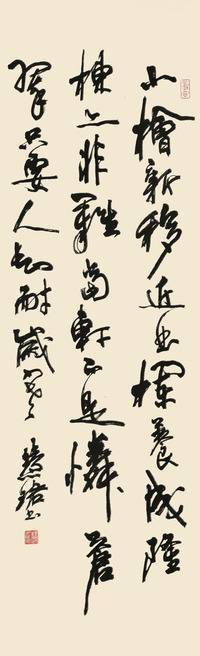 小檜新移近曲欄養成隆
棟亦非難當軒不是憐蒼
翠只要人知耐歲寒 慧珺書